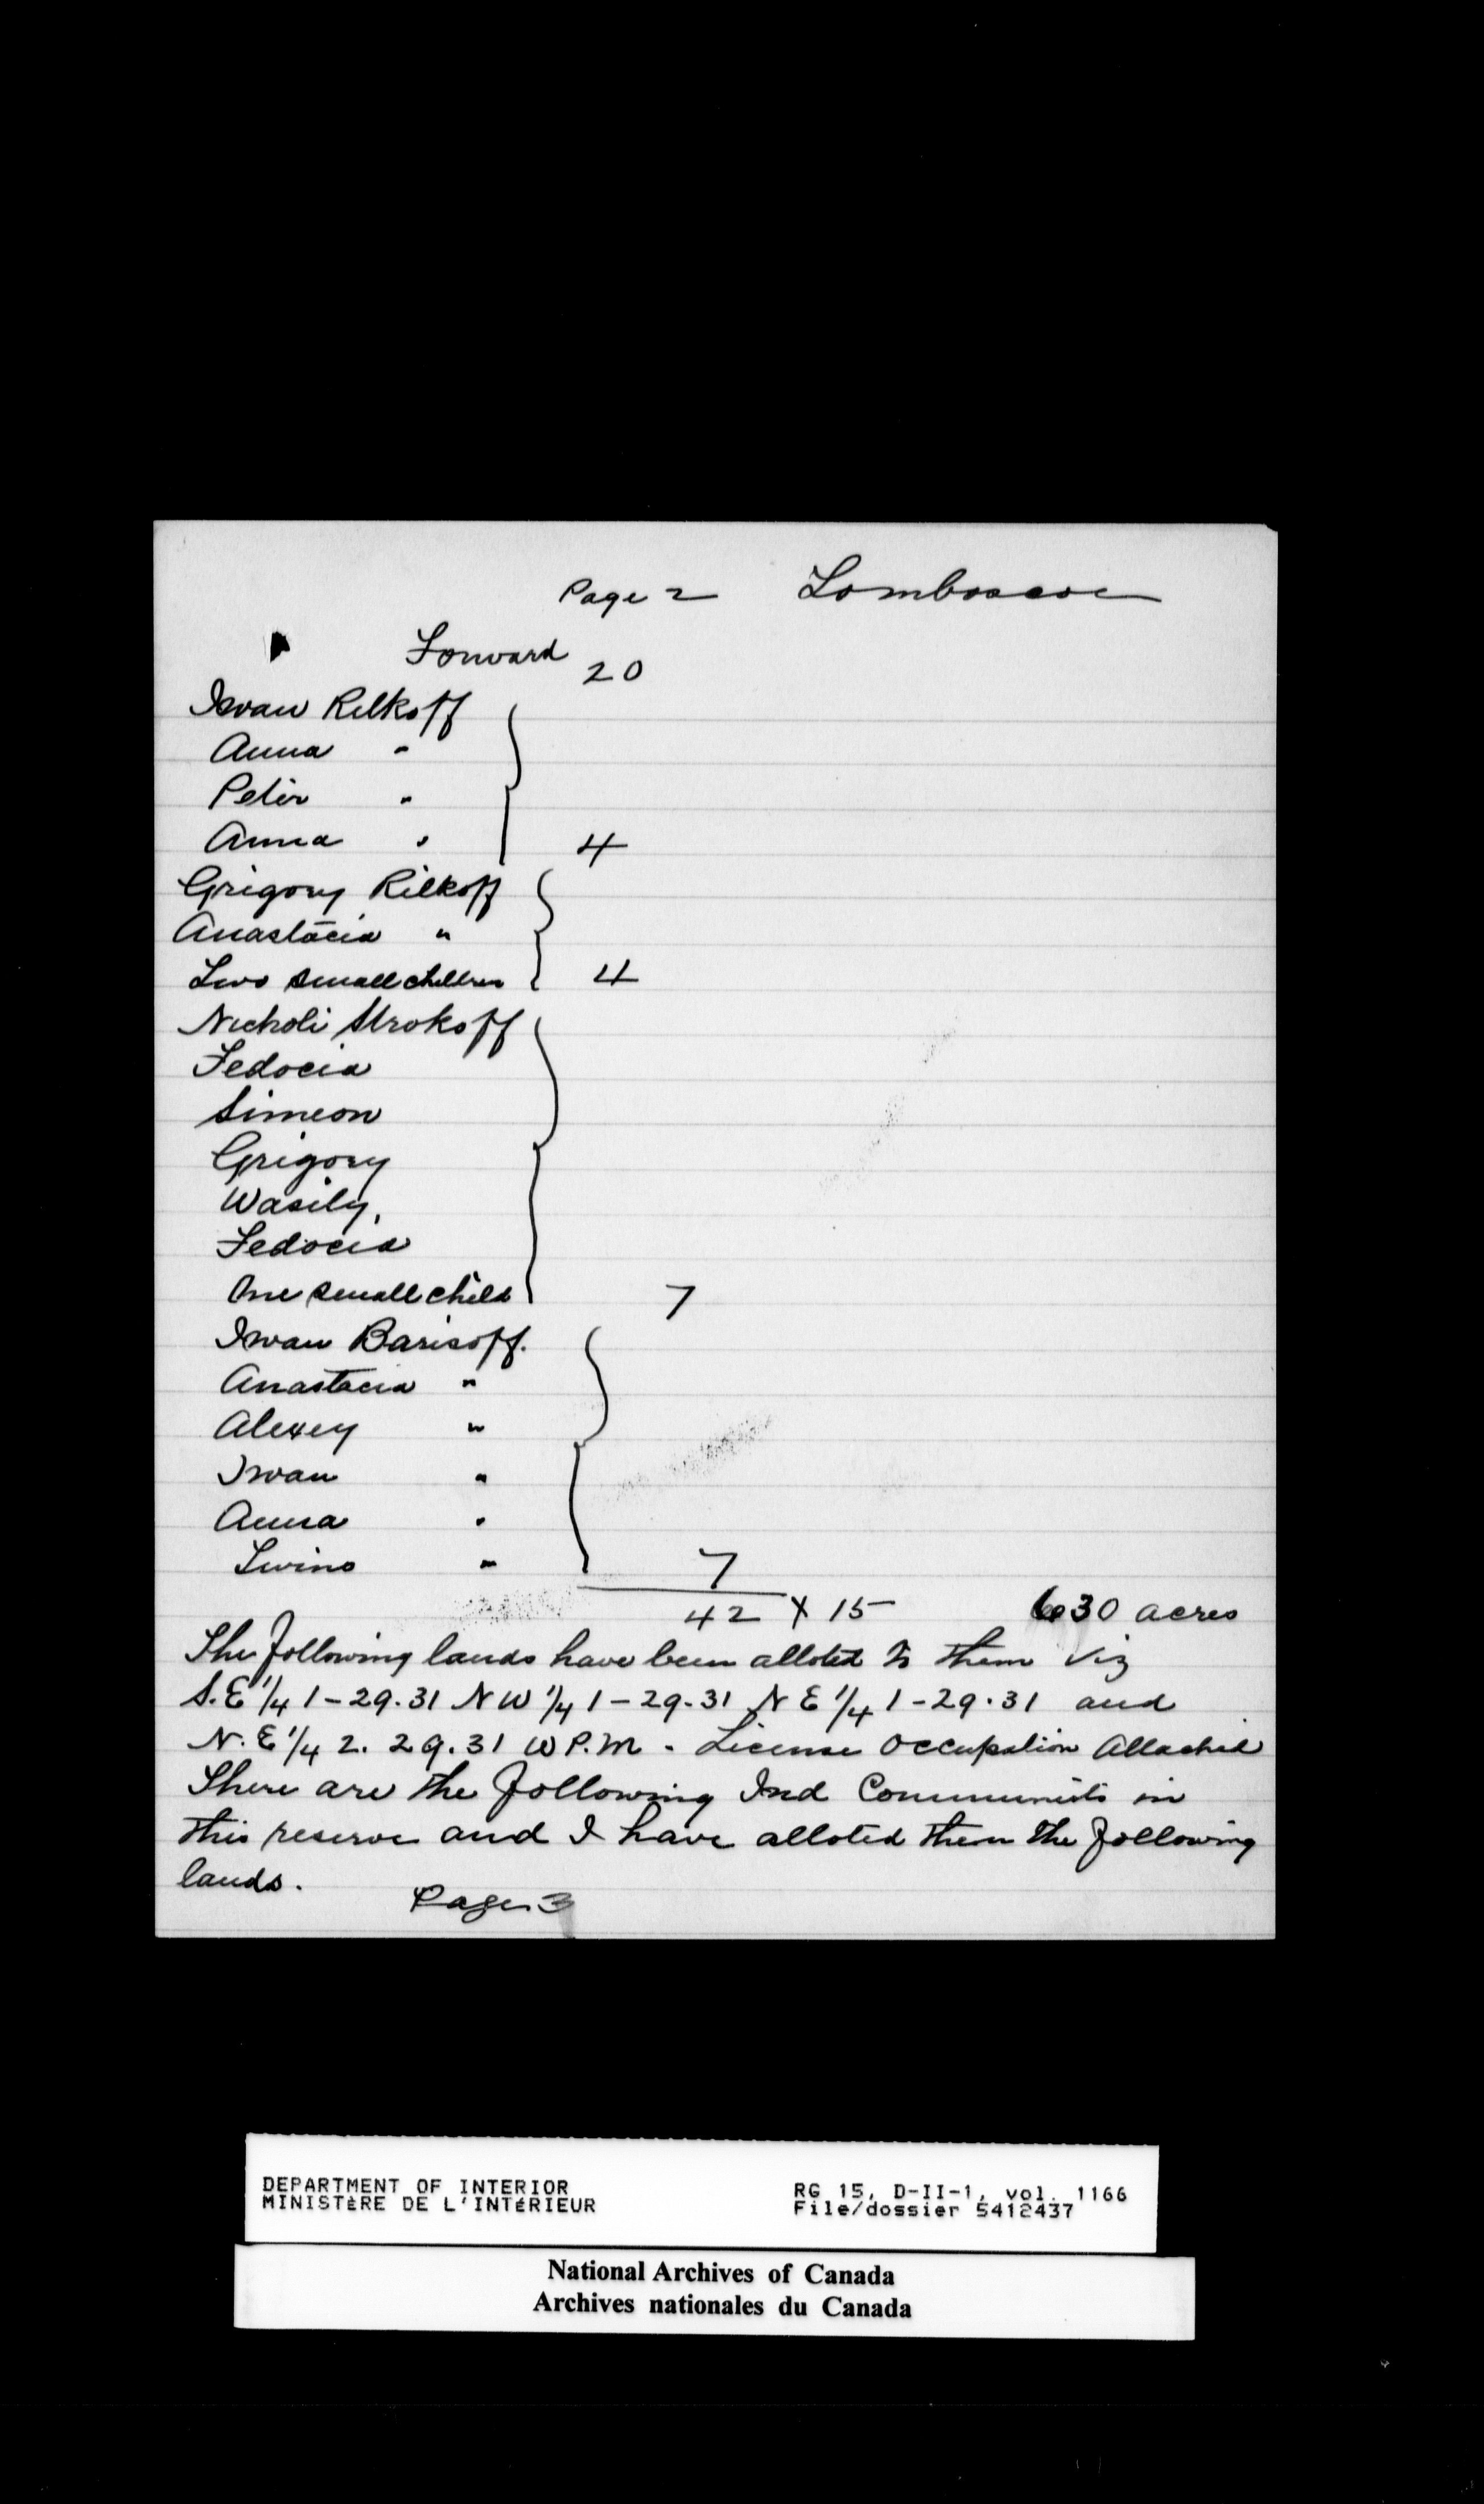 Page 2 Lomboscoe
Forward 20
Iwan Rilkoff
Anna "
Peter "
Anna " 4
Grigory Rilkoff
Anastacia "
Two small children 4
Nicholi Strokoff
Fedocia
Simeon
Grigory
Wasily,
Fedocia
One small child 7
Iwan Barisoff.
Anastacia "
Alexey "
Iwan "
Anna "
Twins " 7
42 X 15 630 acres
The following lands have been alloted to them Viz
S.E 1/4 1-29.31 NW 1/4 1-29.31 NE 1/4 1-29.31 and
N.E 1/4 2. 29.31 W P.M - License Occupation Attached
There are the following Ind Communists in
this reserve and I have alloted them the following
lands.
Page 3
DEPARTMENT OF INTERIOR RG 15, D-II-1, vol. 1166
MINISTÈRE DE L'INTÉRIEUR File/dossier 5412437
National Archives of Canada
Archives nationales du Canada